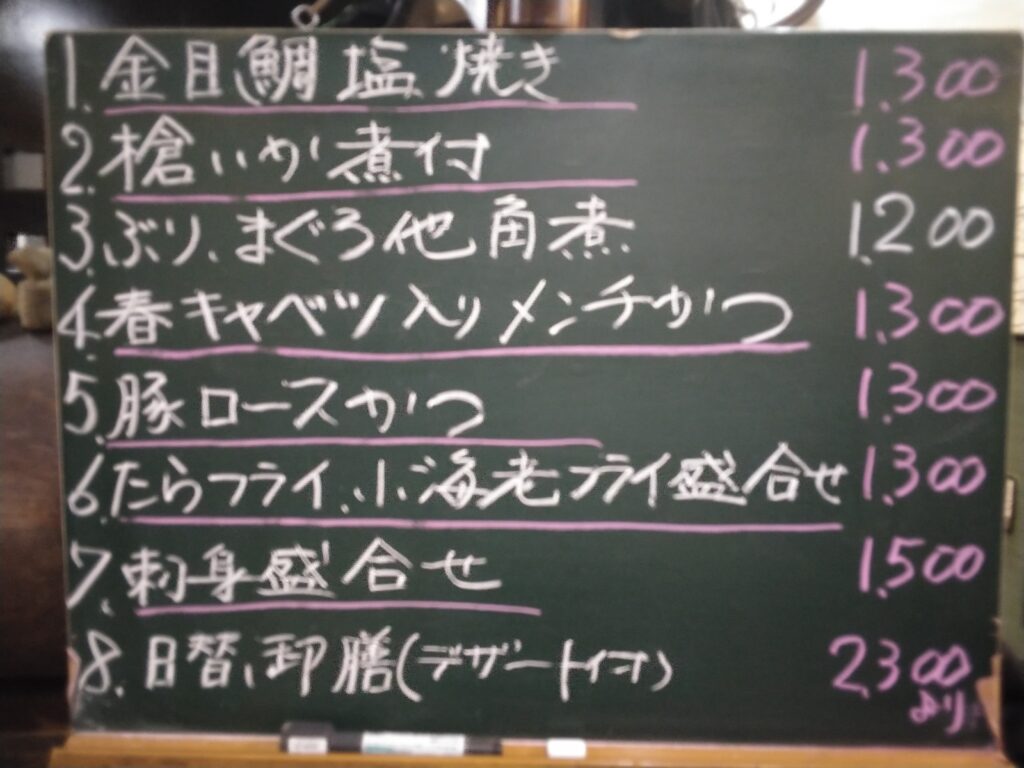 1. 金目鯛塩焼き 1.300
2. 槍いか煮付 1.300
3. ぶり、まぐろ他角煮 1.200
4. 春キャベツ入りメンチかつ 1.300
5. 豚ロースかつ 1.300
6. たらフライ、小海老フライ盛合せ 1.300
7. 刺身盛合せ 1.500
8. 日替、御膳(デザート付) 2.300
より